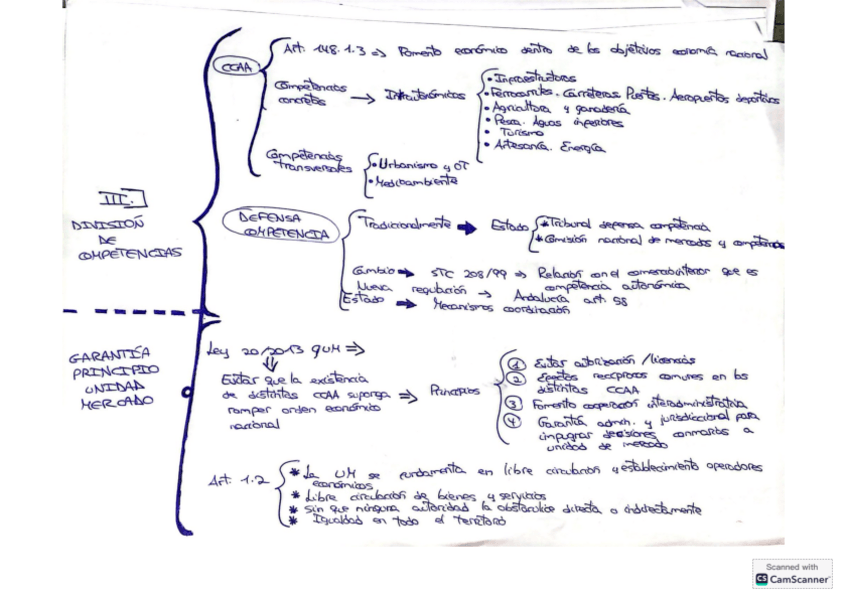 CCAA
Art. 148.1.3 => Fomento económico dentro de los objetivos economía nacional
Competencias concretas → Intraautonómicos
• Infraestructuras
• Ferrocarriles. Carreteras. Puertos. Aeropuertos deportivos
• Agricultura y ganadería
• Pesca. Aguas interiores
• Turismo
• Artesanía. Energía
Competencias transversales
• Urbanismo y OT
• Medioambiente
III.
DIVISIÓN
DE
COMPETENCIAS
DEFENSA
COMPETENCIA
Tradicionalmente → Estado
* Tribunal defensa competencia
* Comisión nacional de mercados y competencia
Cambio → STC 208/99 => Relación con el comercio interior que es
competencia autonómica
Nueva regulación → Andalucía art. 58
Estado → Mecanismos coordinación
GARANTÍA
PRINCIPIO
UNIDAD
MERCADO
Ley 20/2013 GUM =>
Evitar que la existencia
de distintas CCAA suponga => Principios
romper orden económico
nacional
1 Evitar autorización / licencias
2 Efectos recíprocos comunes en las
distintas CCAA
3 Fomento cooperación interadministrativa
4 Garantía admin. y jurisdiccional para
impugnar decisiones contrarias a
unidad de mercado
Art. 1.2
* La UM se fundamenta en libre circulación y establecimiento operadores
económicos
* Libre circulación de bienes y servicios
* Sin que ninguna autoridad la obstaculice directa o indirectamente
* Igualdad en todo el territorio
Scanned with
CS CamScanner